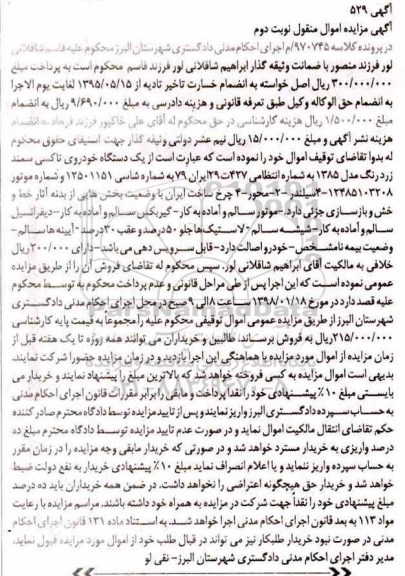 آگهی ۵۲۹
آگهی مزایده اموال منقول نوبت دوم
در پرونده کلاسه ۹۷۰۷۴۵/م اجرای احکام مدنی دادگستری شهرستان البرز محکوم علیه قاسم شاقلانی
لور فرزند منصور با ضمانت وثیقه گذار ابراهیم شاقلانی لور فرزند قاسم محکوم است به پرداخت مبلغ
۳۰۰/۰۰۰/۰۰۰ ریال اصل خواسته به انضمام خسارت تاخیر تادیه از ۱۳۹۵/۰۵/۱۵ لغایت یوم الاجرا
به انضمام حق الوکاله وکیل طبق تعرفه قانونی و هزینه دادرسی به مبلغ ۹/۶۹۰/۰۰۰ ریال به انضمام
۱/۵۰۰/۰۰۰ ریال هزینه کارشناسی در حق محکوم له آقای علی خاکپور فرزند فرهاد به انضمام
هزینه نشر آگهی و مبلغ ۱۵/۰۰۰/۰۰۰ ریال نیم عشر دولتی وثیقه گذار جهت استیفای حقوق محکوم
له بدوا تقاضای توقیف اموال خود را نموده است که عبارت است از یک دستگاه خودروی تاکسی سمند
زرد رنگ مدل ۱۳۸۵ به شماره انتظامی ۴۲۷ت۲۹ ایران ۷۹ به شماره شاسی ۱۲۵۰۱۱۵۱ و شماره موتور
۱۲۴۸۵۱۰۳۲۰۸-۴سیلندر-۲-محور-۴ چرخ ساخت ایران با وضعیت بخش هایی از بدنه آثار خط و
خش و بازسازی جزئی دارد.-موتور سالم و آماده به کار-گیربکس سالم و آماده به کار-دیفرانسیل
سالم و آماده به کار-شیشه سالم-لاستیک ها جلو ۵۰ درصد و عقب ۳۰ درصد-آیینه ها سالم-
وضعیت بیمه نامشخص-خودرو اصالت دارد-قابل سرویس دهی می باشد-دارای ۲۰۰/۰۰۰ ریال
خلافی به مالکیت آقای ابراهیم شاقلانی لور. سپس محکوم له تقاضای فروش آن را از طریق مزایده
عمومی نموده است که این اجرا پس از طی مراحل قانونی و عدم پرداخت محکوم به توسط محکوم
علیه قصد دارد در مورخ ۱۳۹۸/۰۱/۱۸ ساعت ۸ الی ۹ صبح در محل اجرای احکام مدنی دادگستری
شهرستان البرز از طریق مزایده عمومی اموال توقیفی محکوم علیه را مجموعا به قیمت پایه کارشناسی
۲۱۵/۰۰۰/۰۰۰ ریال به فروش برساند. طالبین و خریداران می توانند همه روزه تا یک هفته قبل از
زمان مزایده از اموال مورد مزایده با هماهنگی این اجرا بازدید و در زمان مزایده حضورا شرکت نمایند.
بدیهی است اموال مزایده به کسی فروخته خواهد شد که بالاترین مبلغ را پیشنهاد نمایند و خریدار می
بایستی مبلغ ۱۰٪ پیشنهادی خود را نقدا پرداخت و مابقی را برابر مقررات قانون اجرای احکام مدنی
به حساب سپرده دادگستری البرز واریز نمایند و پس از تایید مزایده توسط دادگاه محترم صادر کننده
حکم تقاضای انتقال مالکیت اموال نماید و در صورت عدم تایید مزایده توسط دادگاه محترم مبلغ ده
درصد واریزی به خریدار مسترد خواهد شد و در صورتی که خریدار مابقی وجه مزایده را در زمان مقرر
به حساب سپرده واریز ننماید و یا اعلام انصراف نماید مبلغ ۱۰٪ پیشنهادی خریدار به نفع دولت ضبط
خواهد شد و خریدار حق هیچگونه اعتراضی را نخواهد داشت. در ضمن همه خریداران باید ده درصد
مبلغ پیشنهادی خود را نقدا جهت شرکت در مزایده به همراه خود داشته باشند. مراسم مزایده با رعایت
مواد ۱۱۳ به بعد قانون اجرای احکام مدنی اجرا خواهد شد. به استناد ماده ۱۳۱ قانون اجرای احکام
مدنی در صورت نبود خریدار طلبکار نیز می تواند در قبال طلب خود از اموال مورد مزایده قبول نماید.
مدیر دفتر اجرای احکام مدنی دادگستری شهرستان البرز- نقی لو